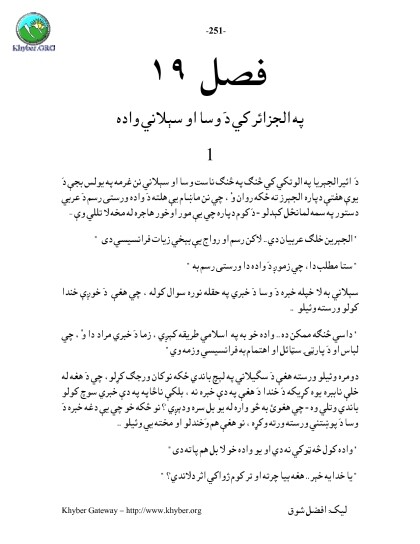 -251-
Khyber.ORG
فصل ۱۹
په الجزائر کي دَ وسا او سېلاني واده
1
دَ ائیر الجبریا په الوتکي کي څنګ په څنګ ناست وسا او سېلاني نن غرمه په یولس بجې دَ
یوې هفتې دپاره الجبرز ته څکه روان وُ ، چي نن ماښام یې هلته دَ واده ورستی رسم دَ عربي
دستور په سمه لمانځل کېدلو - دَ کوم دپاره چي یې مور او خور هاجره له مخه لا تللي وې -
" الجبرین خلګ عربیان دي . لاکن رسم او رواج یې بیخي زیات فرانسیسي دی "
" ستا مطلب دا ، چي زموږ دَ واده دا ورستی رسم به "
سېلاني به لا خپله خبره دَ وسا دَ خبرې په حقله نوره سوال کوله ، چي هغې دَ خوږې خندا
کولو ورسته وئیلو ..
" داسي څنګه ممکن ده .. واده خو به په اسلامي طریقه کېږي ، زما دَ خبرې مراد دا وُ ، چي
لباس او دَ پارټۍ سټائل او اهتمام به فرانسیسي وزمه وي "
دومره وئیلو ورسته هغې دَ سګیلاني په لېچ باندي څکه نوکان ورجګ کړلو ، چي دَ هغه له
خلې نابېره یوه کړیکه دَ خندا دَ هغې په دې خبره نه ، بلکي ناڅاپه په دې خبري سوچ کولو
باندي وتلي وه - چي هغوئ به څو واره له یو بل سره ودېږي ؟ نو څکه خو چي یې دغه خبره دَ
وسا دَ پوښتنې ورسته ورته وکړه ، نو هغې هم وَخندلو او مخته یې وئیلو ..
" واده کول څه ټوکي نه دي او یو واده خو لا بل هم پاته دی "
" یا خدایه خېر .. هغه بیا چرته او تر کوم ژوا کي اثر دلاندي ؟ "
Khyber Gateway – http://www.khyber.org
لیک: افضل شوق